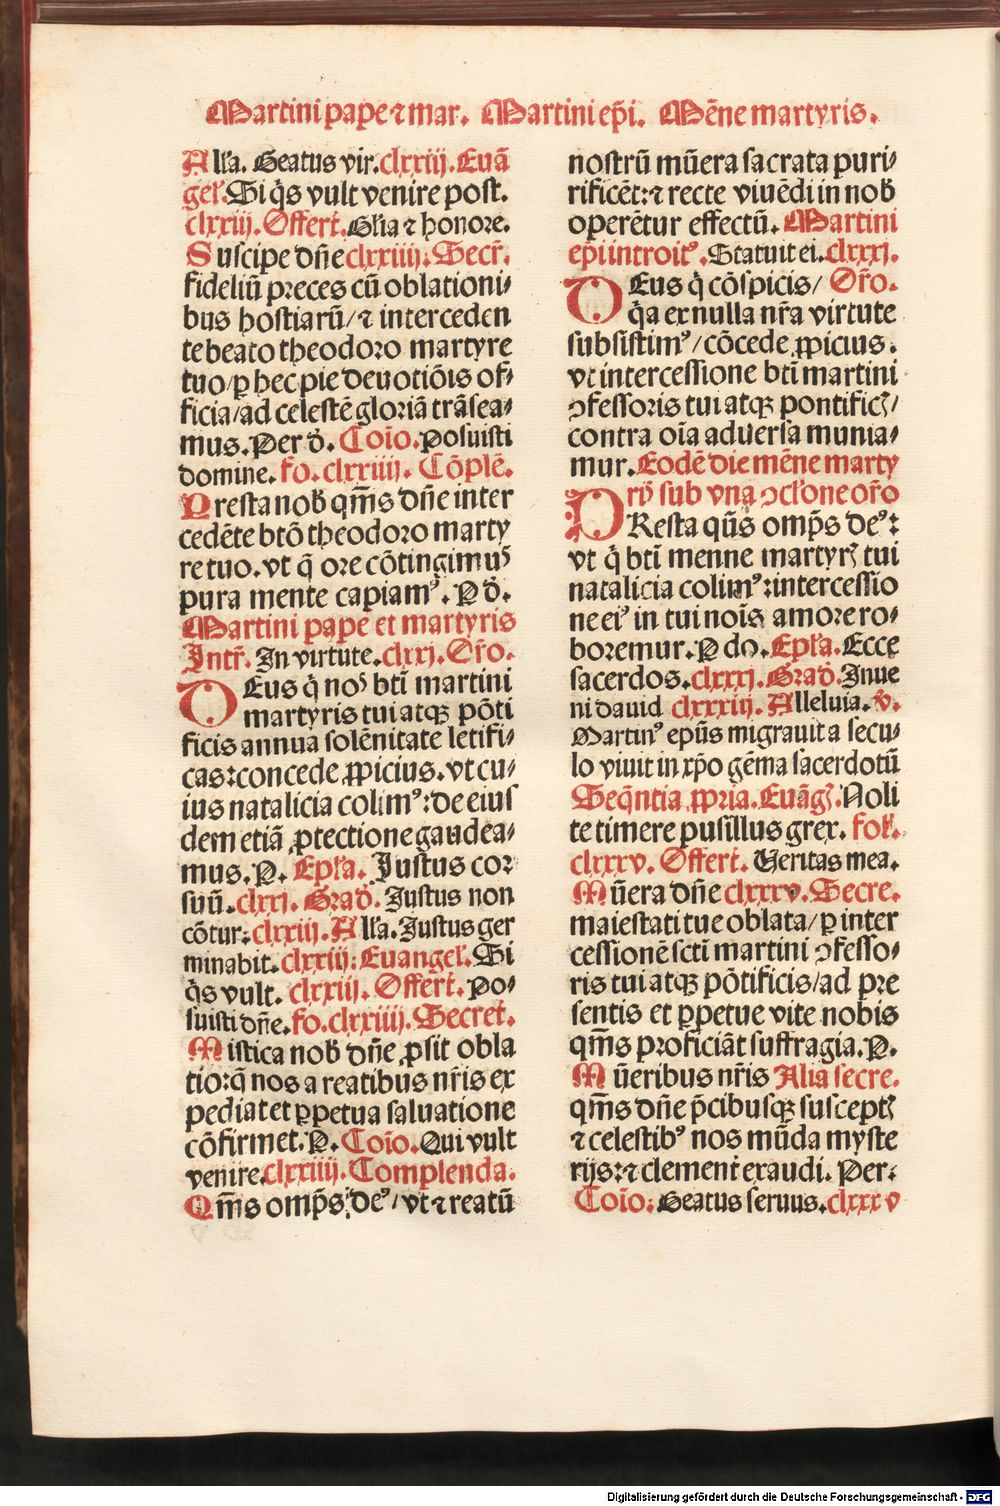 Martini pape ⁊ mar. Martini ep̄i. Mēne martyris.
All'a. Beatus vir. clxxiij. Euā
gel'. Si q̄s vult venire post.
clxxiij. Offert. Gl'ia ⁊ honore.
Suscipe dn̄e clxxiiij. Secr̄.
fideliū preces cū oblationi⸗
bus hostiarū/ ⁊ interceden
te beato theodoro martyre
tuo/ ꝑ hec pie deuotiōis of⸗
ficia/ ad celestē gloriā trāsea⸗
mus. Per d̓. Coīo. Posuisti
domine. fo. clxxiiij. Cōplē.
Presta nob̓ qm̄s dn̄e inter
cedēte btō theodoro marty
re tuo. vt q̄ ore cōtingimuˀ
pura mente capiamꝰ. P d̓.
Martini pape et martyris
Intr̄. In virtute. clxxj. Or̄o.
DEus q̄ noˀ btī martini
martyris tui atqꝫ pōti
ficis annua solēnitate letifi⸗
cas: concede ꝓpicius. vt cu⸗
ius natalicia colimꝰ: de eius
dem etiā ꝓtectione gaudea⸗
mus. P. Epl'a. Justus cor
suū. clxxj. Grad̓. Justus non
cōtur: clxxiij. All'a. Justus ger
minabit. clxxiij: Euangel'. Si
q̄s vult. clxxiij. Offert̄. Po⸗
suisti dn̄e. fo. clxxiiij. Secret.
Mistica nob̓ dn̄e ꝓsit obla
tio: q̄ nos a reatibus nr̄is ex
pediat et ꝑpetua saluatione
cōfirmet. P. Coīo. Qui vult
venire. clxxiiij. Complenda.
Qm̄s omp̄s deꝰ/ vt ⁊ reatū
nostrū mūera sacrata puri⸗
rificēt: ⁊ recte viuēdi in nob̓
operētur effectū. Martini
ep̄i introitꝰ. Statuit ei. clxxxj.
DEus q̄ cōspicis/ Or̄o.
q̄a ex nulla nr̄a virtute
subsistimꝰ/ cōcede ꝓpicius.
vt intercessione btī martini
ꝯfessoris tui atqꝫ pontificꝭ/
contra oīa aduersa munia⸗
mur. Eodē die mēne marty
rij sub vna ꝯcl'one or̄o
PResta qūs omp̄s deꝰ:
vt q̄ btī menne martyrꝭ tui
natalicia colimꝰ: intercessio
ne eiꝰ in tui noīs amore ro⸗
boremur. P do. Epl'a. Ecce
sacerdos. clxxxj. Grad̓. Inue
ni dauid clxxxiij. Alleluia. ℣.
Martinꝰ ep̄us migrauit a secu⸗
lo viuit in xp̄o gēma sacerdotū
Seq̄ntia ꝓpria. Euāgꝭ. Noli
te timere pusillus grex. fol'.
clxxxv. Offert̄. Veritas mea.
Mūera dn̄e clxxxv. Secre.
maiestati tue oblata/ ꝑ inter
cessionē sctī martini ꝯfesso⸗
ris tui atqꝫ pōtificis/ ad pre
sentis et ꝑpetue vite nobis
qm̄s proficiāt suffragia. P.
Mūeribus nr̄is Alia secre.
qm̄s dn̄e p̄cibusqꝫ susceptꝭ
⁊ celestibꝰ nos mūda myste
rijs: ⁊ clement̄ exaudi. Per.
Coīo: Beatus seruus. clxxxv
Digitalisierung gefördert durch die Deutsche Forschungsgemeinschaft - DFG